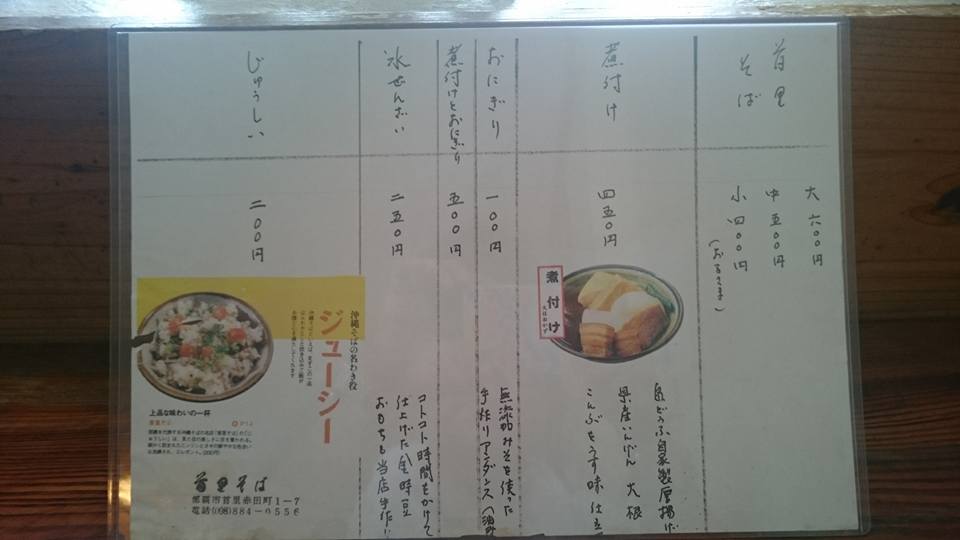 首里
そば
大 六〇〇円
中 五〇〇円
小 四〇〇円
(おこさま)
煮付け
四五〇円
煮付け
島どうふ自家製厚揚げ
県産いんげん 大根
こんぶをうす味仕立
おにぎり
一〇〇円
無添加みそを使った
手作りアンダンスー(油み
煮付けとおにぎり
五〇〇円
氷ぜんざい
二五〇円
コトコト時間をかけて
仕上げた金時豆
おもちも当店手作り
じゅうしい
二〇〇円
沖縄そばの名わき役
ジューシー
上品な味わいの一杯
首里そば
那覇市首里赤田町1-7
電話(098)884-0556